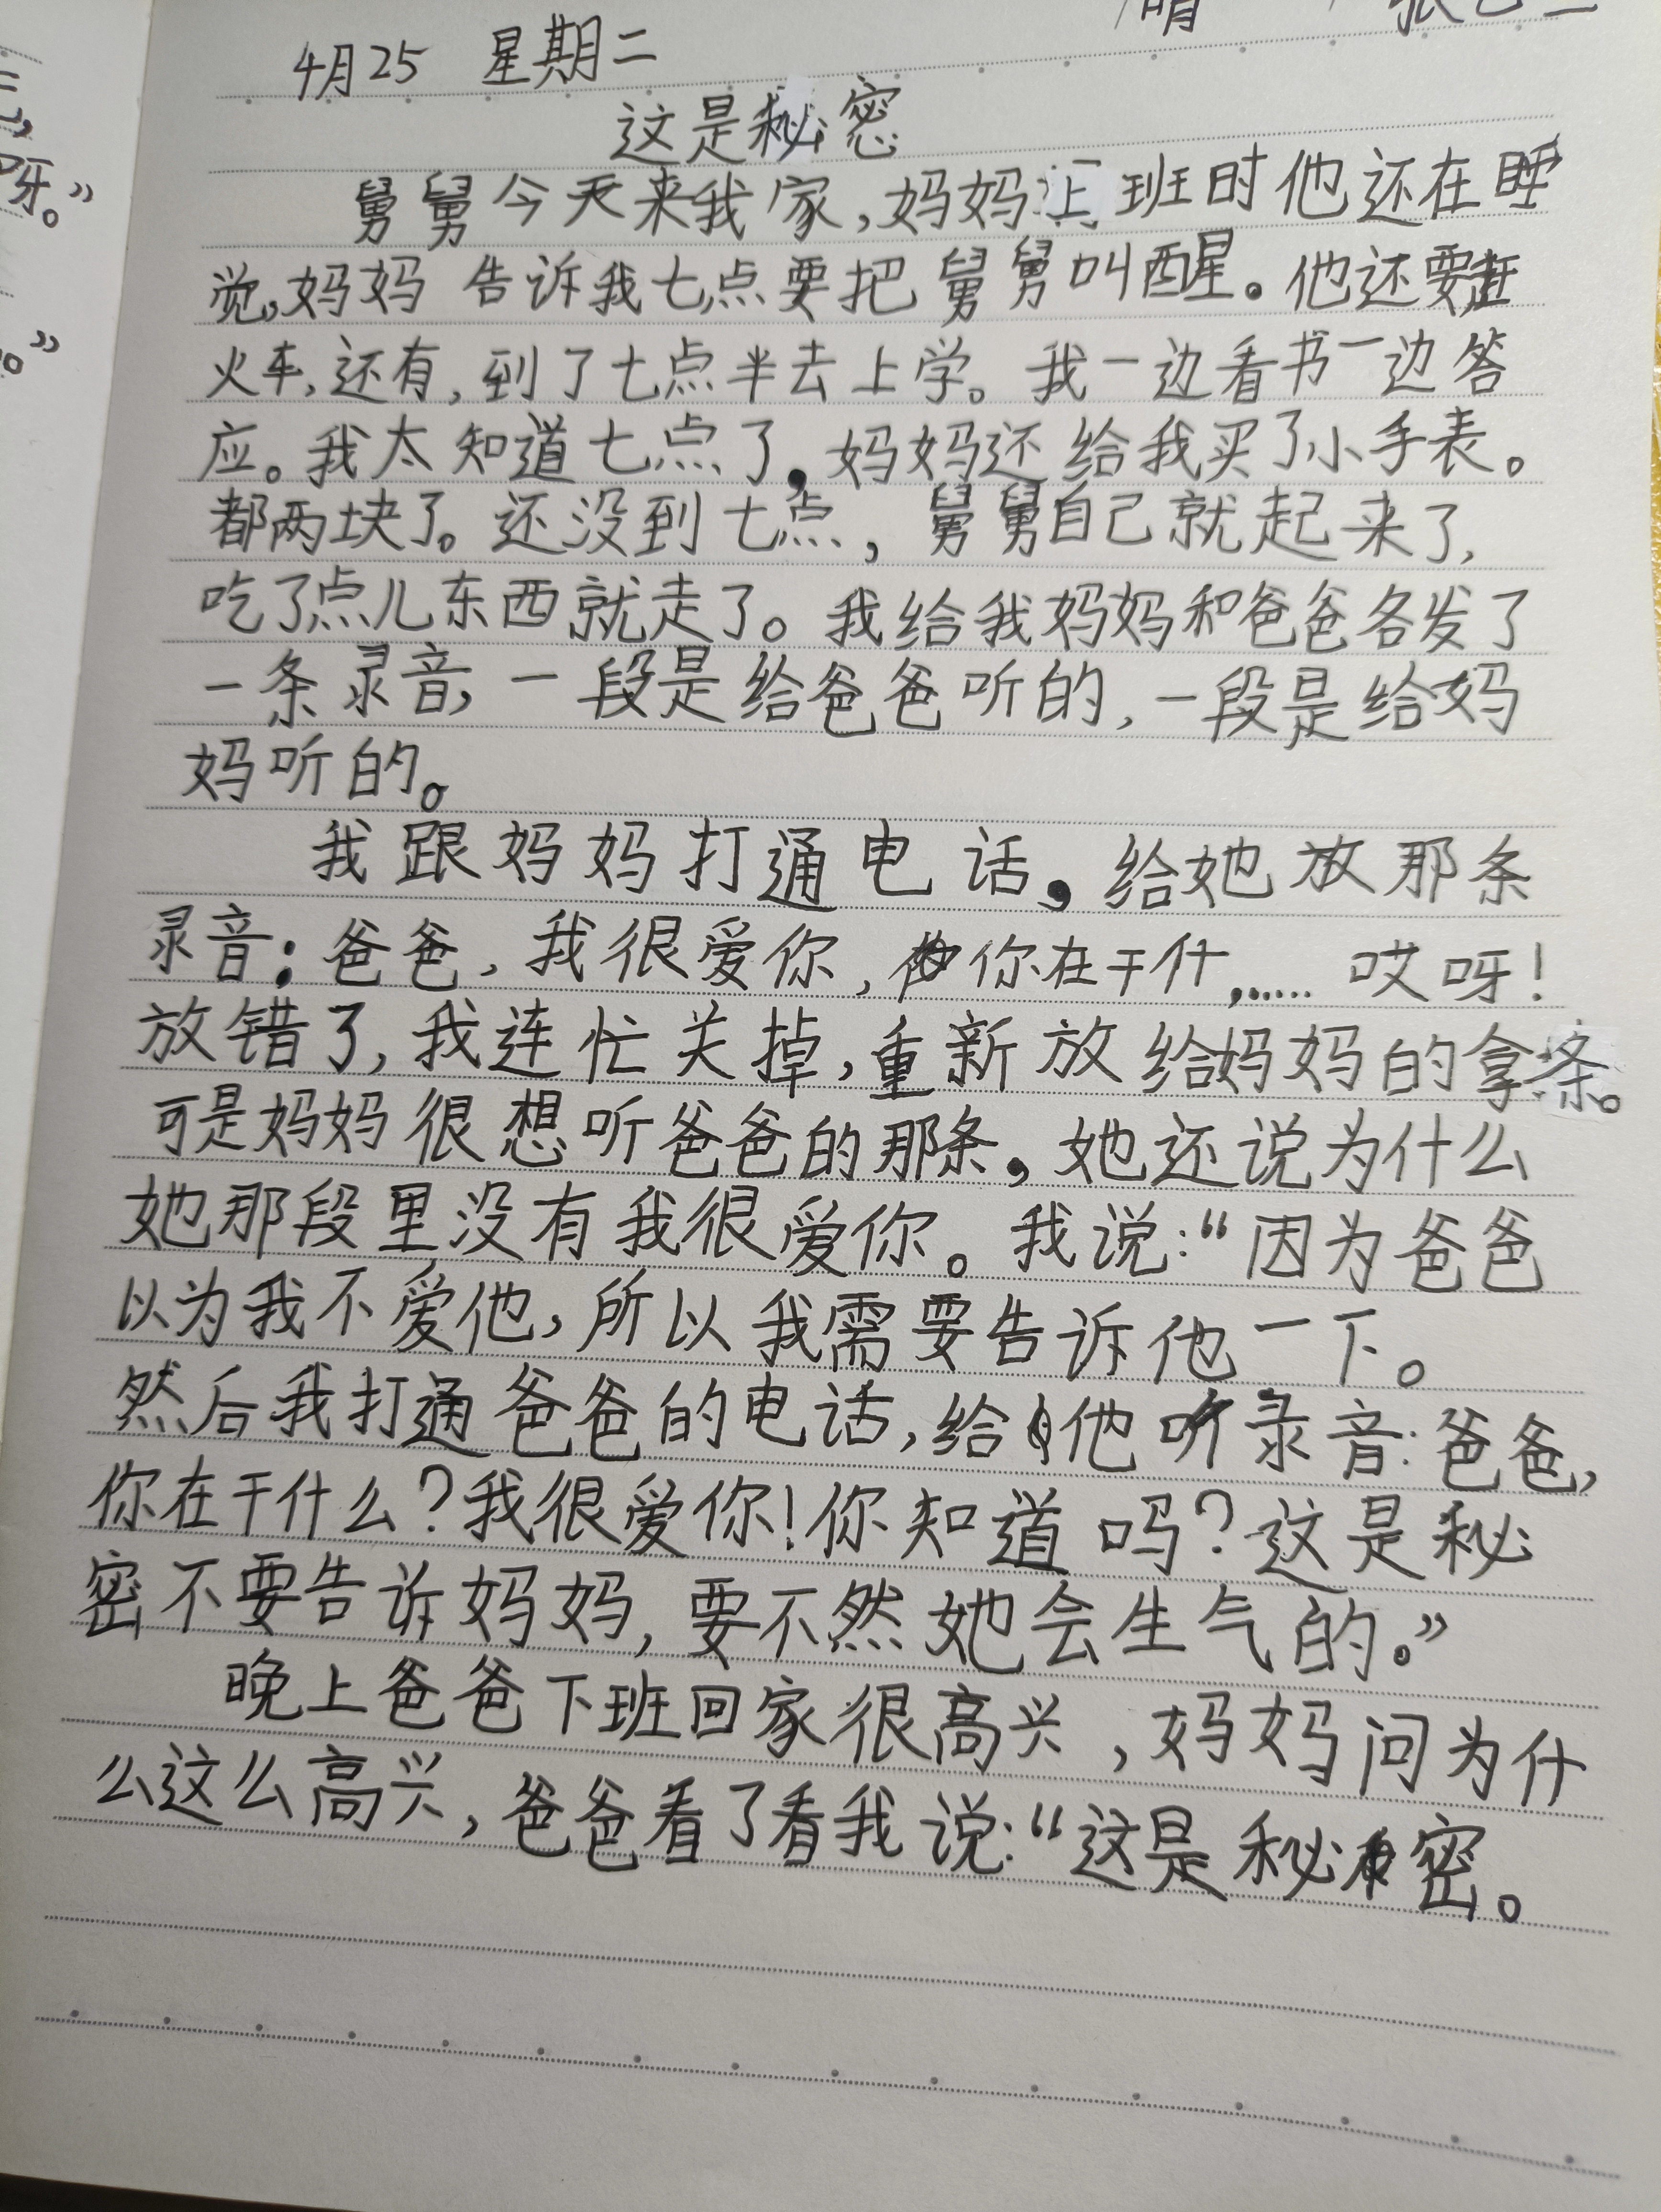 晴
4月25 星期二
这是秘密
舅舅今天来我家,妈妈上班时他还在睡
觉,妈妈 告诉我七点要把舅舅叫醒。他还要赶
火车,还有,到了七点半去上学。我一边看书一边答
应。我太知道七点了,妈妈还给我买了小手表。
都两块了。还没到七点,舅舅自己就起来了,
吃了点儿东西就走了。我给我妈妈和爸爸各发了
一条录音,一段是给爸爸听的,一段是给妈
妈听的。
我跟妈妈打通电话,给她放那条
录音:爸爸,我很爱你,你在干什,…… 哎呀!
放错了,我连忙关掉,重新放给妈妈的拿条。
可是妈妈很想听爸爸的那条,她还说为什么
她那段里没有我很爱你。我说:“因为爸爸
以为我不爱他,所以我需要告诉他一下。
然后我打通爸爸的电话,给他听录音:爸爸,
你在干什么?我很爱你!你知道吗?这是秘
密不要告诉妈妈,要不然她会生气的。”
晚上爸爸下班回家很高兴,妈妈问为什
么这么高兴,爸爸看了看我说:“这是秘密。
呀。”
。”